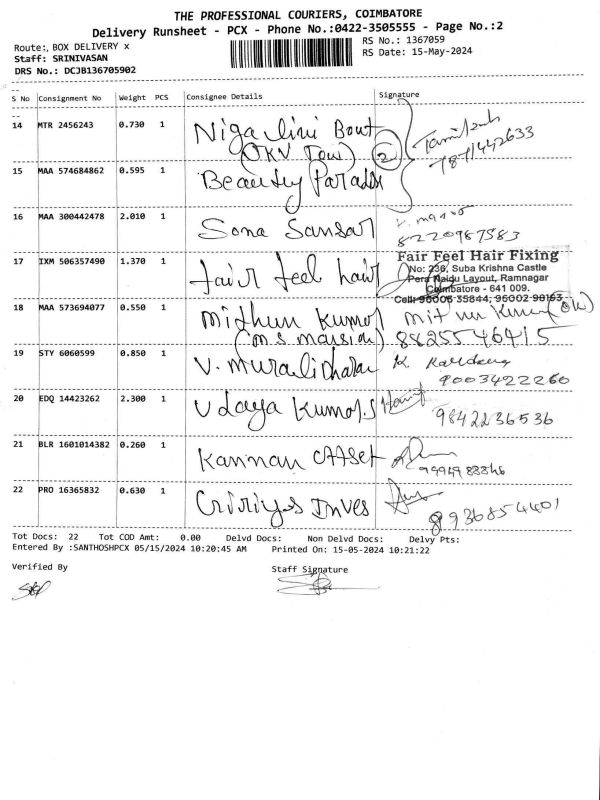 THE PROFESSIONAL COURIERS, COIMBATORE
Delivery Runsheet - PCX - Phone No.:0422-3505555 - Page No.:2
Route:, BOX DELIVERY x
RS No.: 1367059
Staff: SRINIVASAN
RS Date: 15-May-2024
DRS No.: DCJB136705902
S No Consignment No Weight PCS Consignee Details Signature
14 MTR 2456243 0.730 1 Nigalini Bout
(OKV Tow) 2
15 MAA 574684862 0.595 1 Beautey Paradis
16 MAA 300442478 2.010 1 Sona Sansar
8220987583
17 IXM 506357490 1.370 1 fair feel hair
Fair Feel Hair Fixing
No: 236, Suba Krishna Castle
Pera Naidu Layout, Ramnagar
Coimbatore - 641 009.
Cell: 96006 35844, 96002 90193
18 MAA 573694077 0.550 1 Midhun Kumar
(ms mansion) 8825546415
19 STY 6060599 0.850 1 V. Muralidharan K
9003422260
20 EDQ 14423262 2.300 1 Udaya Kumar.S
9842236536
21 BLR 1601014382 0.260 1 Kannan offset
22 PRO 16365832 0.630 1
8936854401
Tot Docs: 22 Tot COD Amt: 0.00 Delvd Docs: Non Delvd Docs: Delvy Pts:
Entered By :SANTHOSHPCX 05/15/2024 10:20:45 AM Printed On: 15-05-2024 10:21:22
Verified By Staff Signature